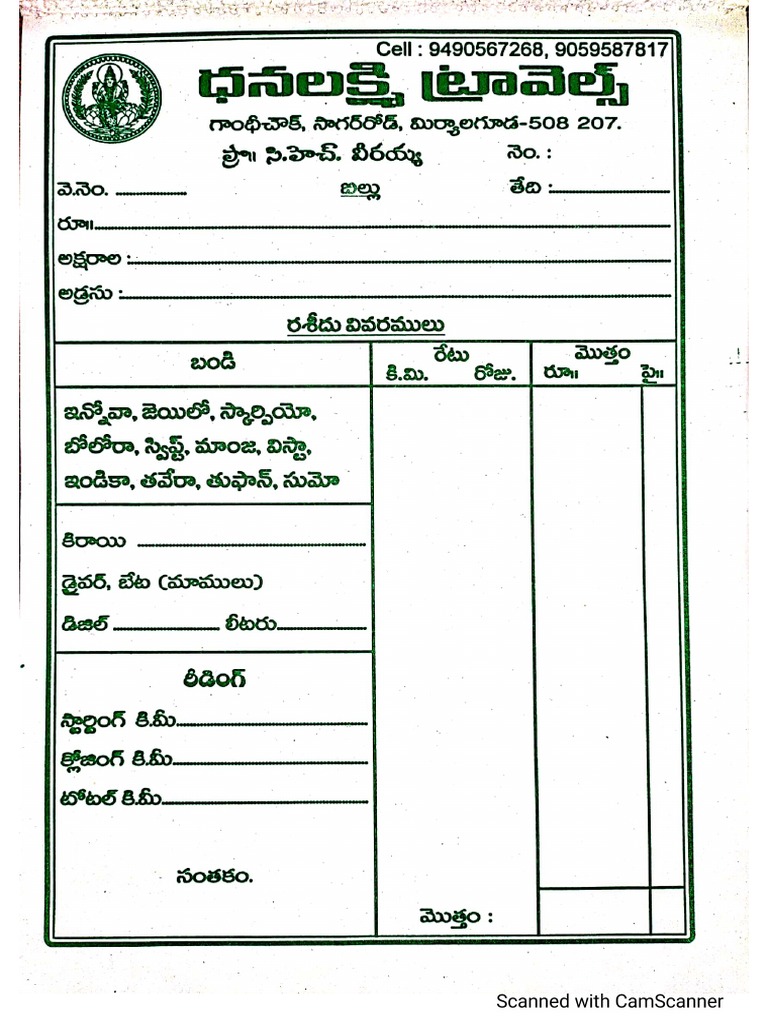 Cell : 9490567268, 9059587817
ధనలక్ష్మి ట్రావెల్స్
గాంధీచౌక్, సాగర్‌రోడ్, మిర్యాలగూడ-508 207.
ప్రొ॥ సి.హెచ్. వీరయ్య నెం. :
వె.నెం. ................ బిల్లు తేది :............................
రూ॥..............................................................
అక్షరాల :..............................................................
అడ్రసు :..............................................................
రశీదు వివరములు
బండి రేటు మొత్తం
కి.మి. రోజు. రూ॥ పై॥
ఇన్నోవా, జెయిలో, స్కార్పియో,
బోలోరా, స్విఫ్ట్, మాంజ, విస్టా,
ఇండికా, తవేరా, తుఫాన్, సుమో
కిరాయి ............................................
డ్రైవర్, బేట (మాములు)
డిజిల్ .................... లీటరు....................
రీడింగ్
స్టార్టింగ్ కి.మీ........................................
క్లోజింగ్ కి.మీ........................................
టోటల్ కి.మీ........................................
సంతకం.
మొత్తం :
Scanned with CamScanner